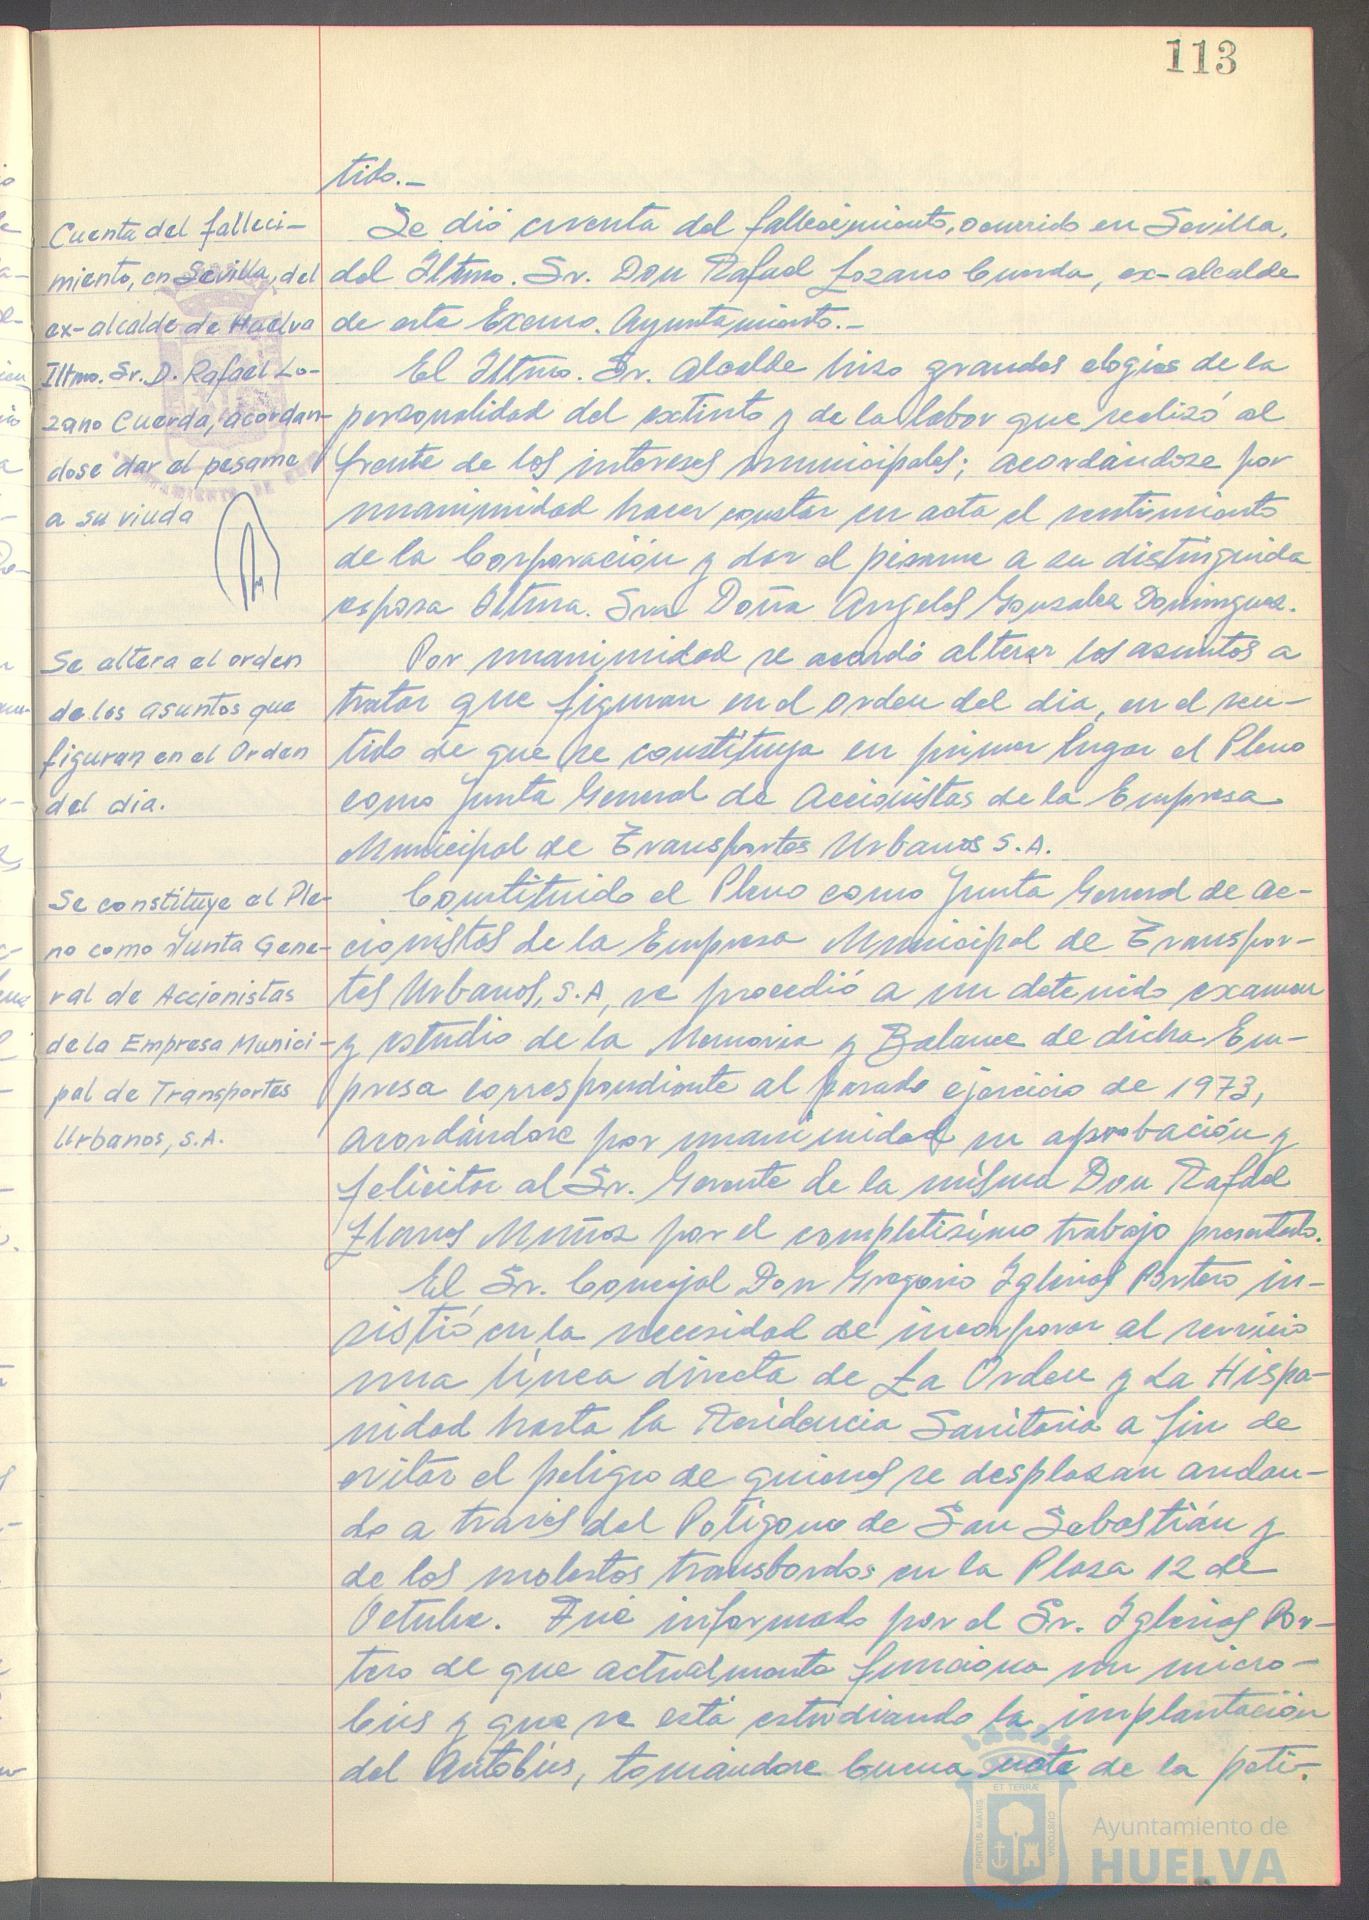 113
tido.-
Cuenta del falleci-
miento, en Sevilla, del
ex-alcalde de Huelva
Iltmo. Sr. D. Rafael Lo-
zano Cuerda, acordan-
dose dar el pesame
a su viuda
Se dió cuenta del fallecimiento, ocurrido en Sevilla,
del Iltmo. Sr. Don Rafael Lozano Cuerda, ex-alcalde
de este Excmo. Ayuntamiento.-
El Iltmo. Sr. Alcalde hizo grandes elogios de la
personalidad del extinto y de la labor que realizó al
frente de los intereses municipales; acordándose por
unanimidad hacer constar en acta el sentimiento
de la Corporación y dar el pésame a su distinguida
esposa Iltma. Sra Doña Angeles Gonzalez Dominguez.
Se altera el orden
de los asuntos que
figuran en el Orden
del dia.
Por unanimidad se acordó alterar los asuntos a
tratar que figuran en el orden del dia, en el sen-
tido de que se constituya en primer lugar el Pleno
como Junta General de Accionistas de la Empresa
Municipal de Transportes Urbanos S.A.
Se constituye el Ple-
no como Junta Gene-
ral de Accionistas
de la Empresa Munici-
pal de Transportes
Urbanos, S.A.
Constituido el Pleno como Junta General de Ac-
cionistas de la Empresa Municipal de Transpor-
tes Urbanos, S.A, se procedió a un detenido examen
y estudio de la Memoria y Balance de dicha Em-
presa correspondiente al pasado ejercicio de 1973,
acordándose por unanimidad su aprobación y
felicitar al Sr. Gerente de la misma Don Rafael
Llanes Muñoz por el completísimo trabajo presentado.
El Sr. Concejal Don Gregorio Iglesias Portero in-
sistió en la necesidad de incorporar al servicio
una línea directa de La Orden y La Hispa-
nidad hasta la Residencia Sanitaria a fin de
evitar el peligro de quienes se desplazan andan-
do a través del Polígono de San Sebastián y
de los molestos transbordos en la Plaza 12 de
Octubre. Fué informado por el Sr. Iglesias Por-
tero de que actualmente funciona un micro-
bús y que se está estudiando la implantación
del Autobús, tomándose buena nota de la peti-
PORTUS MARIS
ET TERRÆ
CUSTODIA
Ayuntamiento de
HUELVA